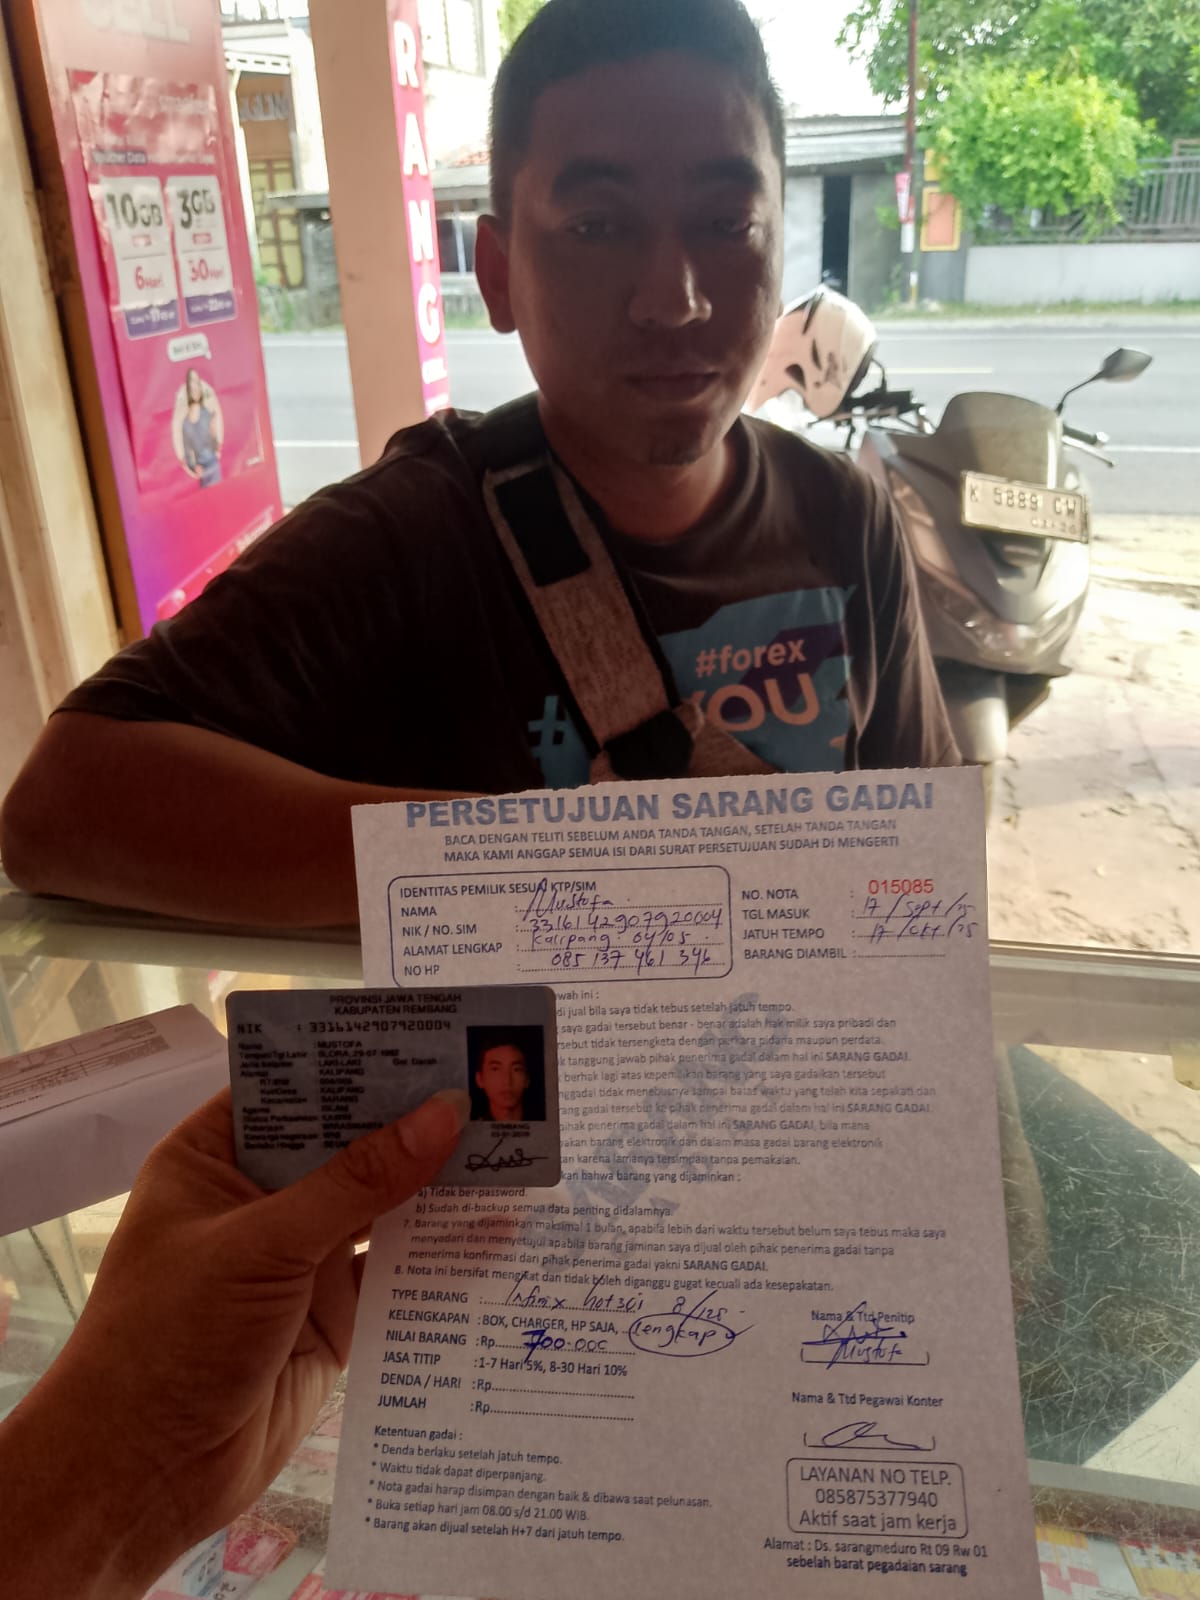 Voucher Data
10GB
3GB
6 Hari
30 Hari
RANG
K 5889 CW
#forex
YOU
PERSETUJUAN SARANG GADAI
BACA DENGAN TELITI SEBELUM ANDA TANDA TANGAN, SETELAH TANDA TANGAN
MAKA KAMI ANGGAP SEMUA ISI DARI SURAT PERSETUJUAN SUDAH DI MENGERTI
IDENTITAS PEMILIK SESUAI KTP/SIM
NAMA : Mustofa
NIK / NO. SIM : 3316142907920004
ALAMAT LENGKAP : Kalipang 04/05
NO HP : 085 137 461 346
NO. NOTA : 015085
TGL MASUK : 17 / Sept / 25
JATUH TEMPO : 17 / Okt / 25
BARANG DIAMBIL :
PROVINSI JAWA TENGAH
KABUPATEN REMBANG
NIK : 3316142907920004
Nama : MUSTOFA
Tempat/Tgl Lahir : BLORA, 29-07-1992
Jenis Kelamin : LAKI-LAKI Gol. Darah :
Alamat : KALIPANG
RT/RW
Kel/Desa : KALIPANG
Kecamatan : SARANG
Agama : ISLAM
Status Perkawinan : KAWIN
Pekerjaan : WIRASWASTA
Kewarganegaraan : WNI
Berlaku Hingga
REMBANG
wah ini :
di jual bila saya tidak tebus setelah jatuh tempo.
saya gadai tersebut benar - benar adalah hak milik saya pribadi dan
rsebut tidak tersengketa dengan perkara pidana maupun perdata.
k tanggung jawab pihak penerima gadai dalam hal ini SARANG GADAI.
berhak lagi atas kepemilikan barang yang saya gadaikan tersebut
nggadai tidak menebusnya sampai batas waktu yang telah kita sepakati dan
rang gadai tersebut ke pihak penerima gadai dalam hal ini SARANG GADAI.
pihak penerima gadai dalam hal ini SARANG GADAI, bila mana
pakan barang elektronik dan dalam masa gadai barang elektronik
kan karena lamanya tersimpan tanpa pemakaian.
kan bahwa barang yang dijaminkan :
a) Tidak ber-password.
b) Sudah di-backup semua data penting didalamnya.
7. Barang yang dijaminkan maksimal 1 bulan, apabila lebih dari waktu tersebut belum saya tebus maka saya
menyadari dan menyetujui apabila barang jaminan saya dijual oleh pihak penerima gadai tanpa
menerima konfirmasi dari pihak penerima gadai yakni SARANG GADAI.
8. Nota ini bersifat mengikat dan tidak boleh diganggu gugat kecuali ada kesepakatan.
TYPE BARANG : Infinix hot 30i 8/128
KELENGKAPAN : BOX, CHARGER, HP SAJA, lengkap
NILAI BARANG : Rp. 700.000
JASA TITIP : 1-7 Hari 5%, 8-30 Hari 10%
DENDA / HARI : Rp
JUMLAH : Rp
Nama & Ttd Penitip
Mustofa
Nama & Ttd Pegawai Konter
Ketentuan gadai :
* Denda berlaku setelah jatuh tempo.
* Waktu tidak dapat diperpanjang.
* Nota gadai harap disimpan dengan baik & dibawa saat pelunasan.
* Buka setiap hari jam 08.00 s/d 21.00 WIB.
* Barang akan dijual setelah H+7 dari jatuh tempo.
LAYANAN NO TELP.
085875377940
Aktif saat jam kerja
Alamat : Ds. sarangmeduro Rt 09 Rw 01
sebelah barat pegadaian sarang